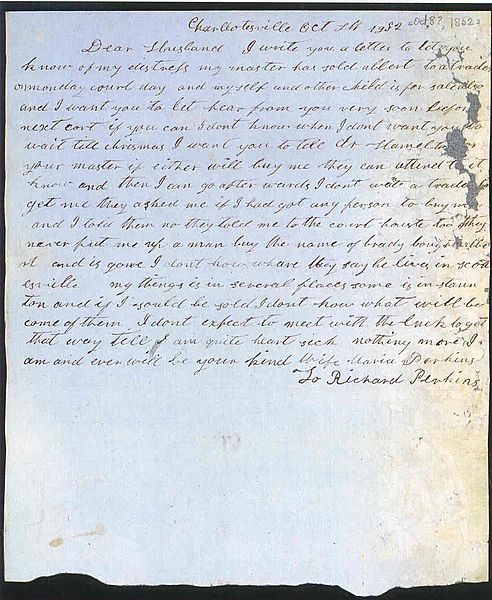 Charllotesville Oct 8th 1852 Oct 8? 1852
Dear Husband I write you a letter to let you
know of my distress my master has sold albert to a trader
on monday court day and myself and other child is for sale also
and I want you to let hear from you very soon before
next cort if you can I dont know when I dont want you to
wait till chrismas I want you to tell dr Hamelton
your master if either will buy me they can attend to it
know and then I can go after wards I dont want a trader to
get me they asked me if I had got any person to buy me
and I told them no they told me to the court houste too they
never put me up a man buy the name of brady bought albert
and is gone I dont know whare they say he lives in scott
esville my things is in several places some is in staun
ton and if I sould be sold I dont know what will be
come of them I dont expect to meet with the luck to get
that way till I am quite heart sick nothing more I
am and ever will be your kind Wife Maria Perkins
To Richard Perkins